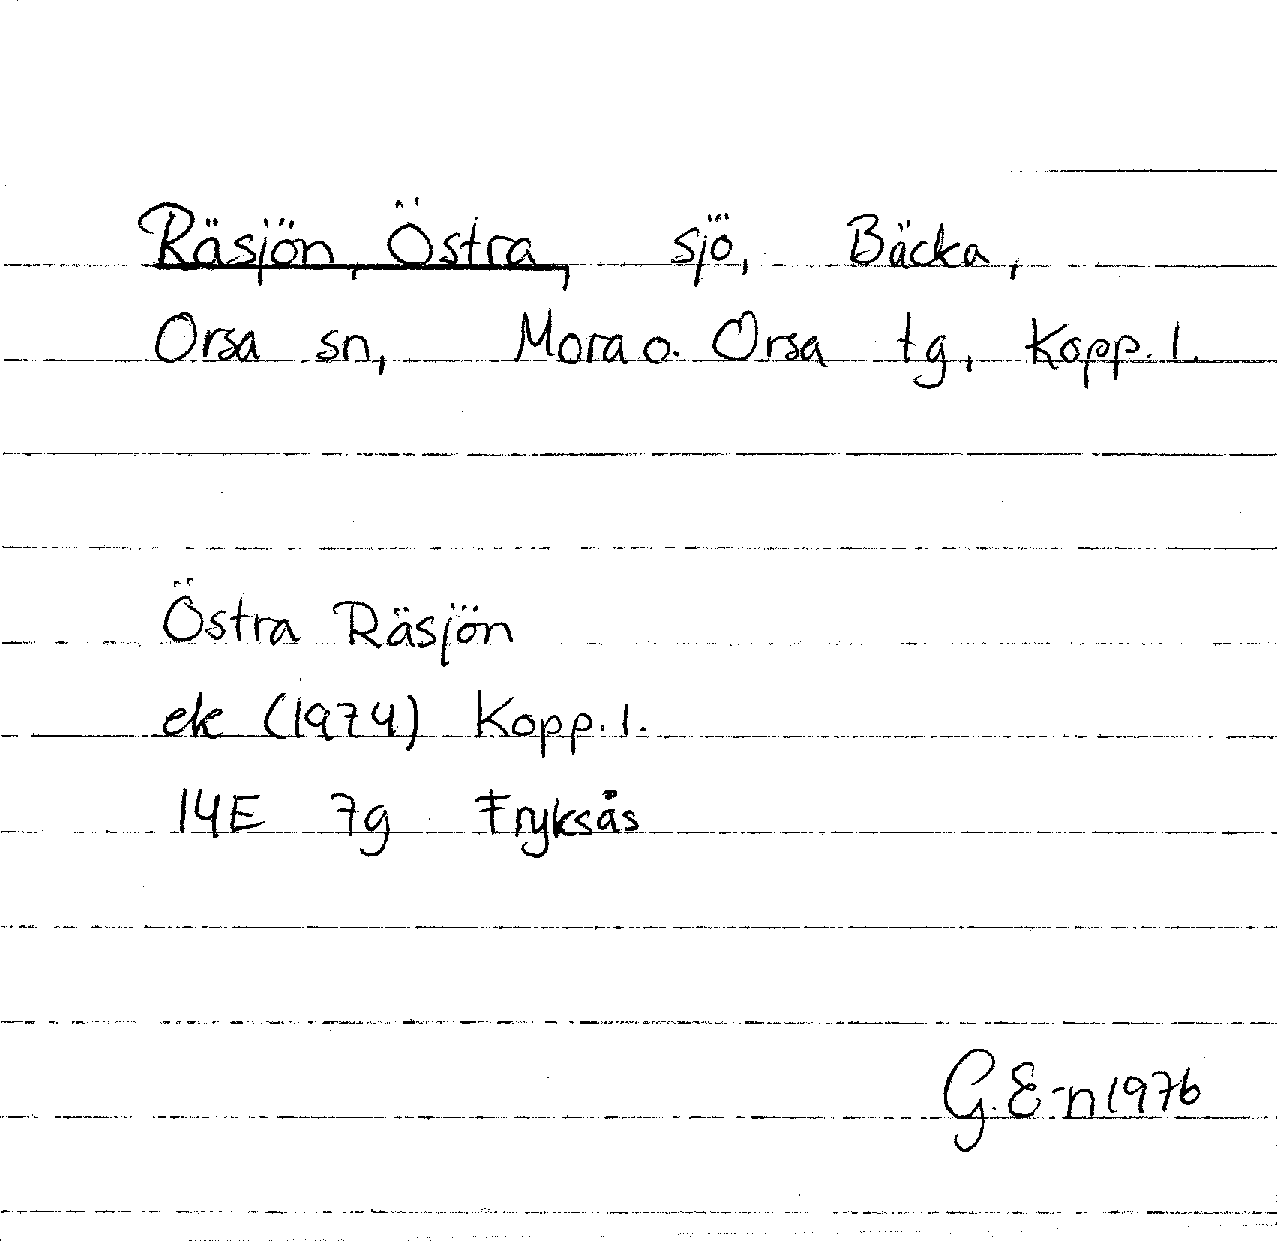 Räsjön, Östra, sjö, Bäcka,
Orsa sn, Mora o. Orsa tg, Kopp. l.
Östra Räsjön
ek (1974) Kopp. l.
14E 7g Fryksås
G. E-n 1976